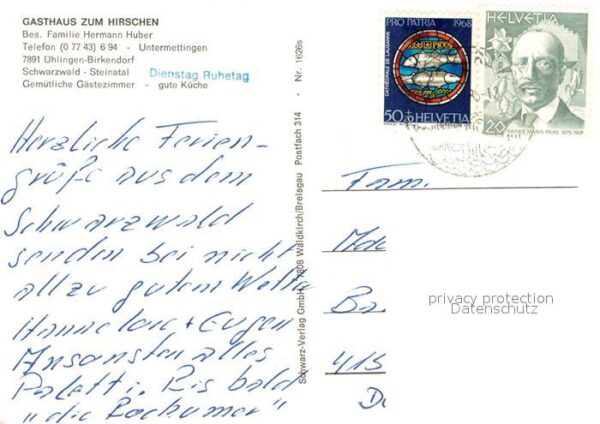 GASTHAUS ZUM HIRSCHEN
Bes. Familie Hermann Huber
Telefon (0 77 43) 6 94 - Untermettingen
7891 Ühlingen-Birkendorf
Schwarzwald - Steinatal
Gemütliche Gästezimmer - gute Küche
Dienstag Ruhetag
Herzliche Ferien-
grüße aus dem
Schwarzwald
senden bei nicht
allzu gutem Wetter
Hannelore + Eugen
Ansonsten alles
Paletti. Bis bald
"die Bochumer"
Schwarz-Verlag GmbH · 7808 Waldkirch/Breisgau Postfach 314 · Nr. 1626s
PRO PATRIA 1968
CATHÉDRALE DE LAUSANNE
50+20 HELVETIA
HELVETIA
20
RAINER MARIA RILKE 1875-1926
Fam.
Br
415
privacy protection
Datenschutz